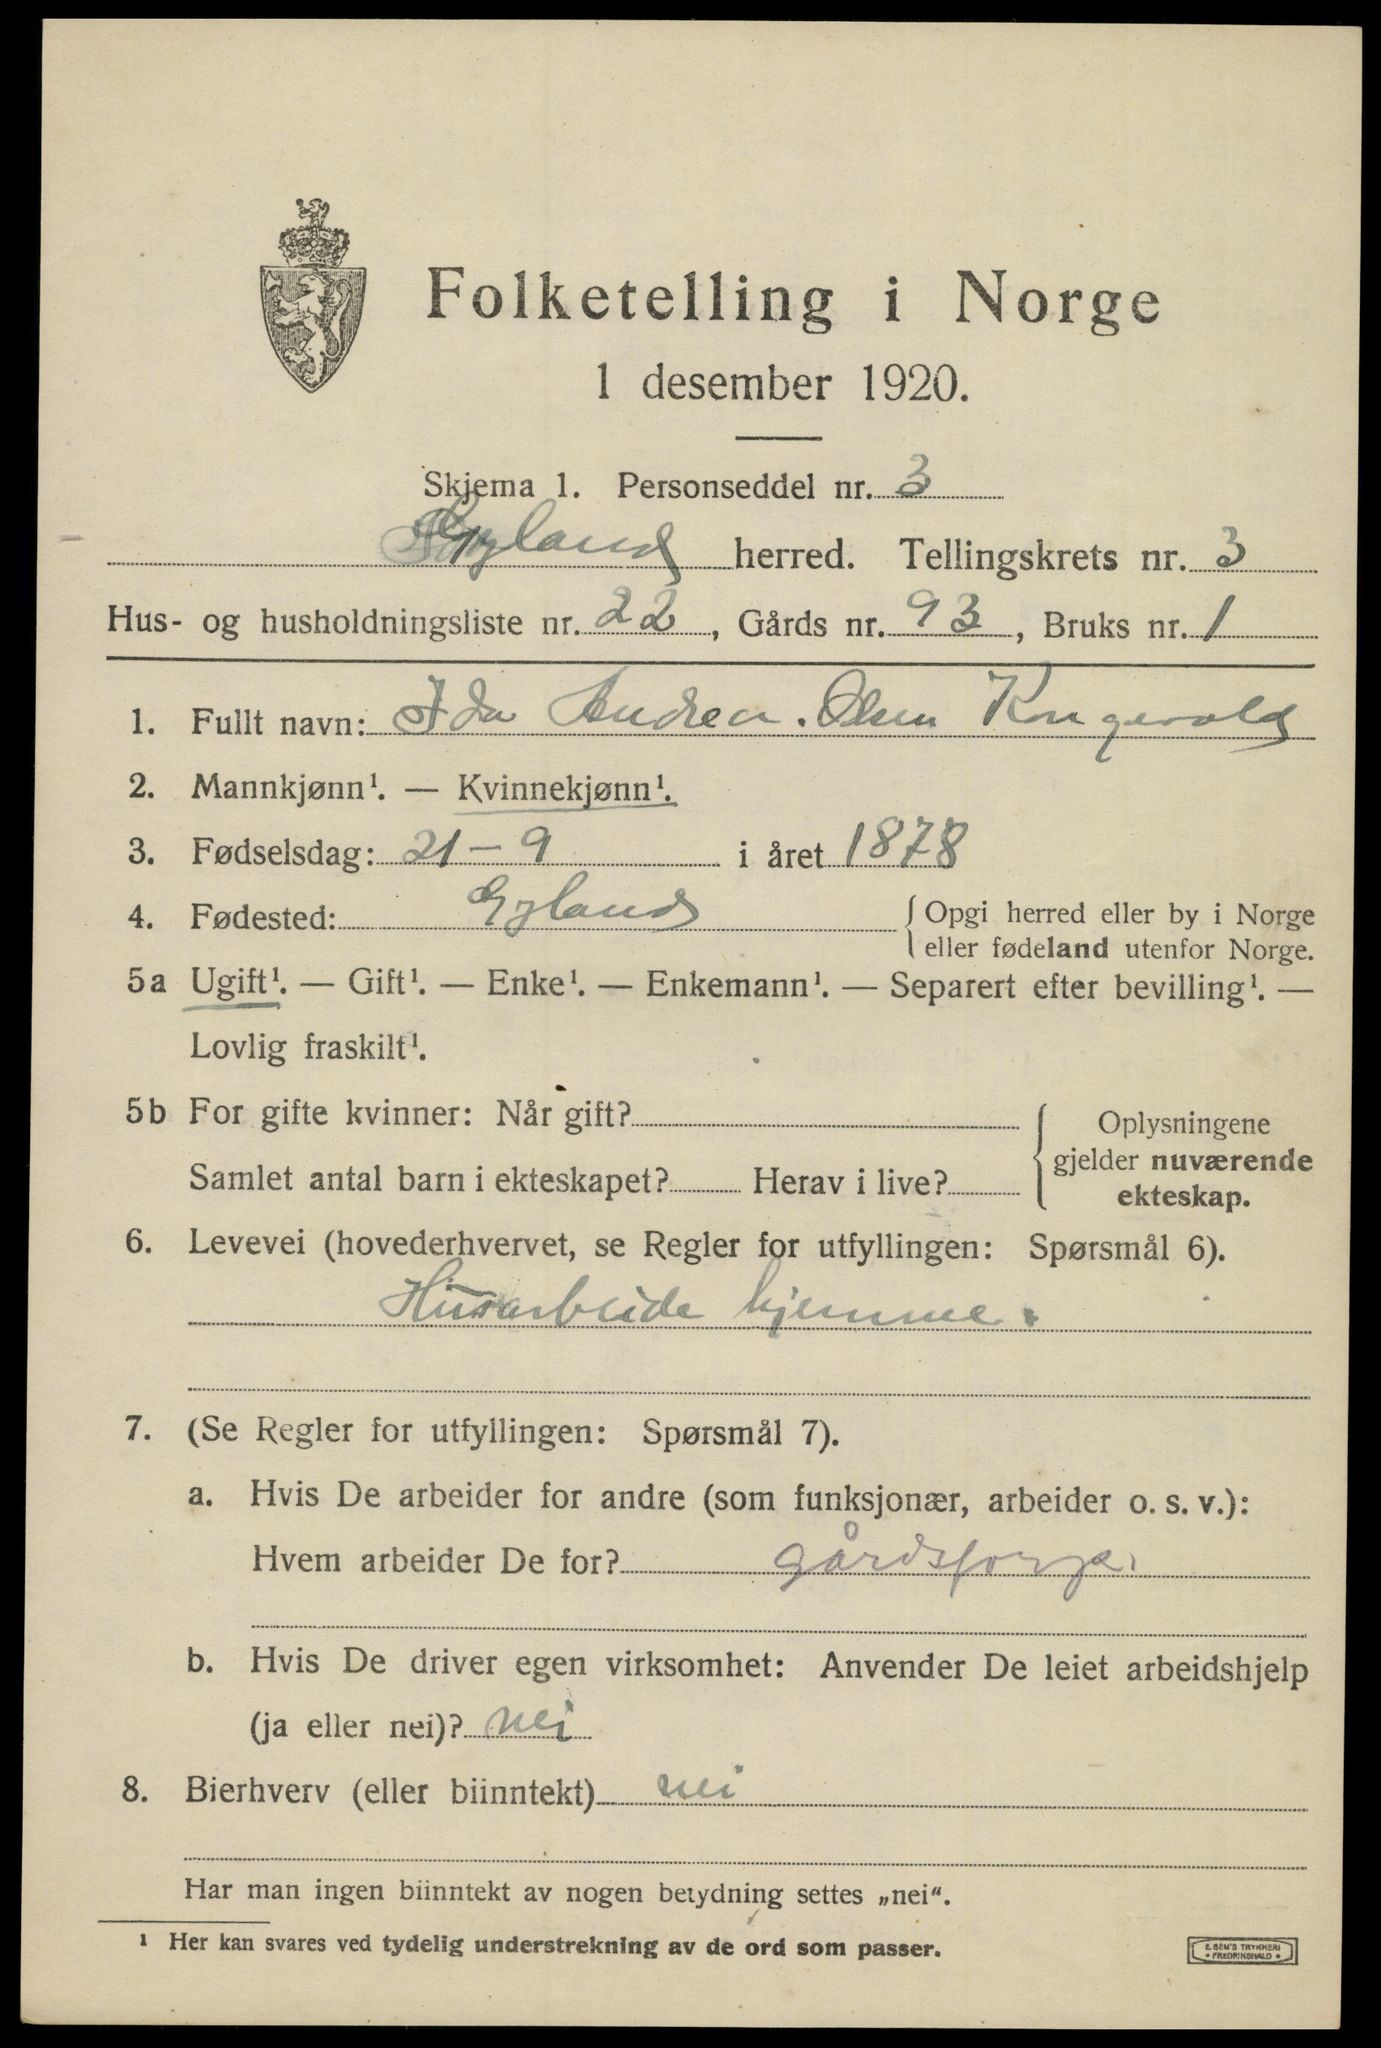 Folketelling i Norge
1 desember 1920.
Skjema 1. Personseddel nr. 3
Gyland herred. Tellingskrets nr. 3
Hus- og husholdningsliste nr. 22, Gårds nr. 93, Bruks nr. 1
1. Fullt navn: Ida Andrea. Olsen Kongevold
2. Mannkjønn¹. — Kvinnekjønn¹.
3. Fødselsdag: 21 – 9 i året 1878
4. Fødested: Gyland { Opgi herred eller by i Norge
eller fødeland utenfor Norge.
5a Ugift¹. — Gift¹. — Enke¹. — Enkemann¹. — Separert efter bevilling¹. —
Lovlig fraskilt¹.
5b For gifte kvinner: Når gift? { Oplysningene
gjelder nuværende
Samlet antal barn i ekteskapet? Herav i live?
ekteskap.
6. Levevei (hovederhvervet, se Regler for utfyllingen: Spørsmål 6).
Husarbeide hjemme.
7. (Se Regler for utfyllingen: Spørsmål 7).
a. Hvis De arbeider for andre (som funksjonær, arbeider o. s. v.):
Hvem arbeider De for?
b. Hvis De driver egen virksomhet: Anvender De leiet arbeidshjelp
(ja eller nei)? nei
8. Bierhverv (eller biinntekt) nei
Har man ingen biinntekt av nogen betydning settes „nei“.
¹ Her kan svares ved tydelig understrekning av de ord som passer.
E. SEM'S TRYKKERI
• FREDRIKSHALD •